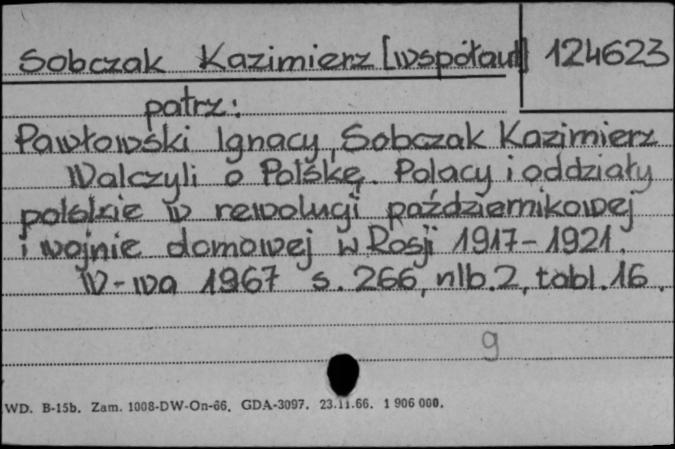 Sobczak Kazimierz [współaut] 124623
patrz:
Pawłowski Ignacy, Sobczak Kazimierz
Walczyli o Polskę. Polacy i oddziały
polskie w rewolucji październikowej
i wojnie domowej w Rosji 1917-1921.
W-wa 1967 s. 266, nlb. 2, tabl. 16.
9
WD. B-15b. Zam. 1008-DW-On-66. GDA-3097. 23.11.66. 1 906 000.